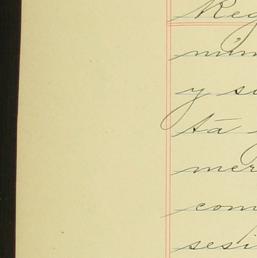 Reg
núm
y su
tá
mer
com
sesi